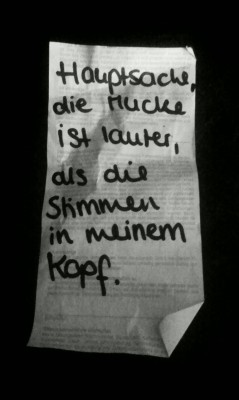 Hauptsache,
die Mucke
ist lauter,
als die
Stimmen
in meinem
Kopf.